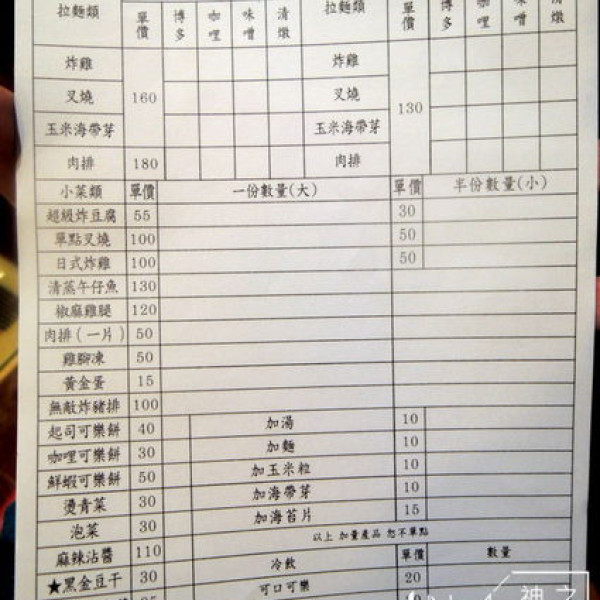 拉麵類 單價 博多 咖哩 味噌 清燉 拉麵類 單價 博多 咖哩 味噌 清燉
炸雞 160 炸雞 130
叉燒 叉燒
玉米海帶芽 玉米海帶芽
肉排 180 肉排
小菜類 單價 一份數量(大) 單價 半份數量(小)
超級炸豆腐 55 30
單點叉燒 100 50
日式炸雞 100 50
清蒸午仔魚 130
椒麻雞腿 120
肉排(一片) 50
雞腳凍 50
黃金蛋 15
無敵炸豬排 100
起司可樂餅 40 加湯 10
咖哩可樂餅 30 加麵 10
鮮蝦可樂餅 50 加玉米粒 10
燙青菜 30 加海帶芽 10
泡菜 30 加海苔片 15
麻辣沾醬 110 以上 加量產品 恕不單點
★黑金豆干 30 冷飲 單價 數量
可口可樂 20
神之